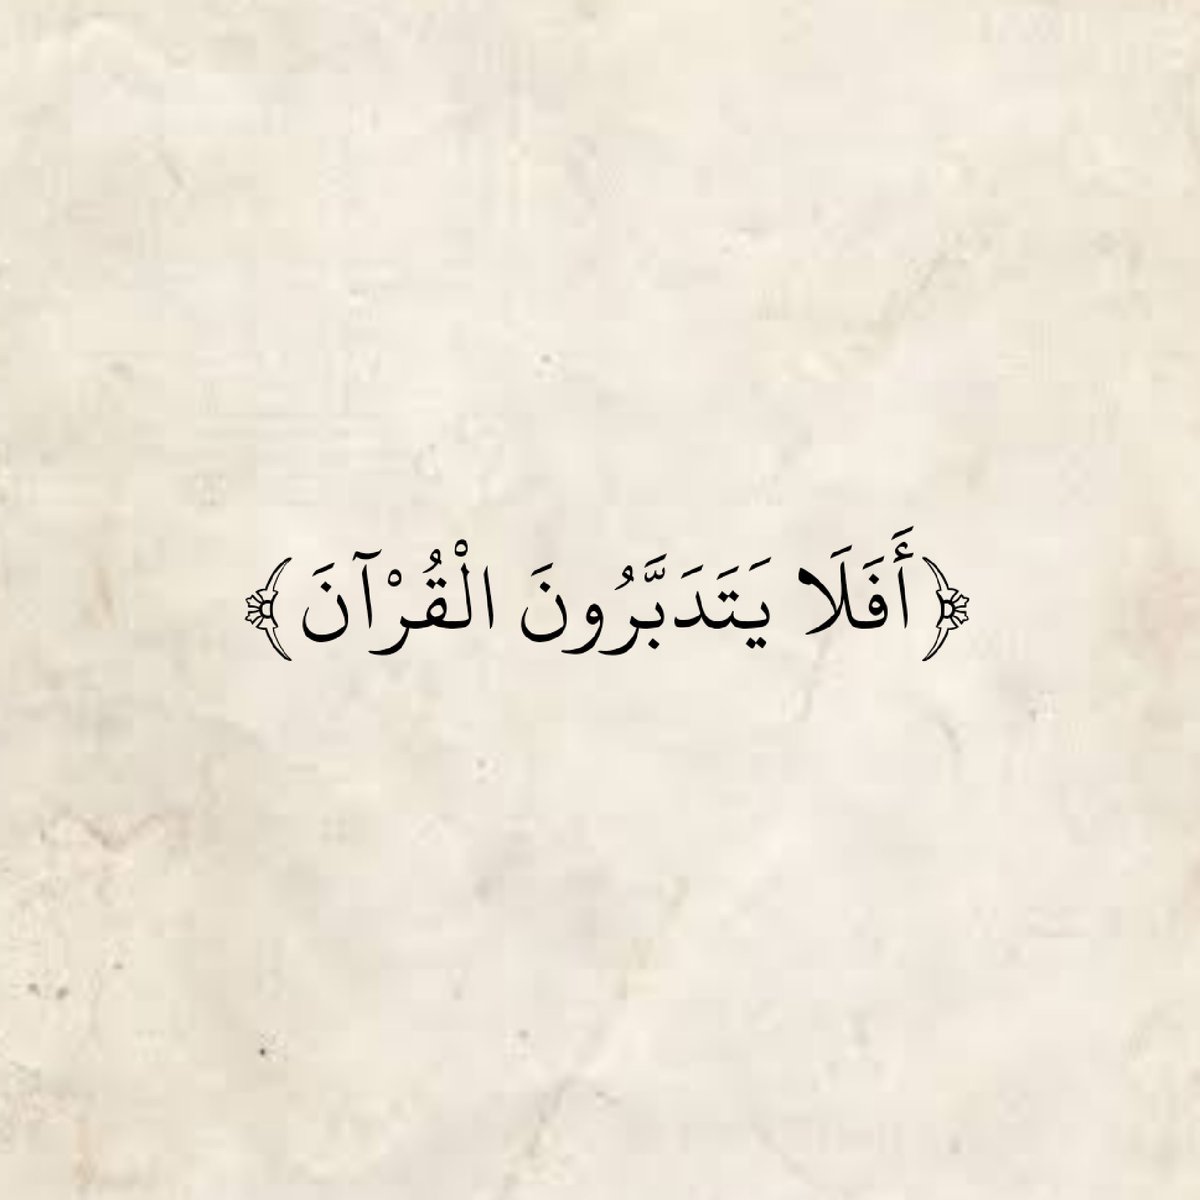 ﴿أَفَلَا يَتَدَبَّرُونَ الْقُرْآنَ﴾